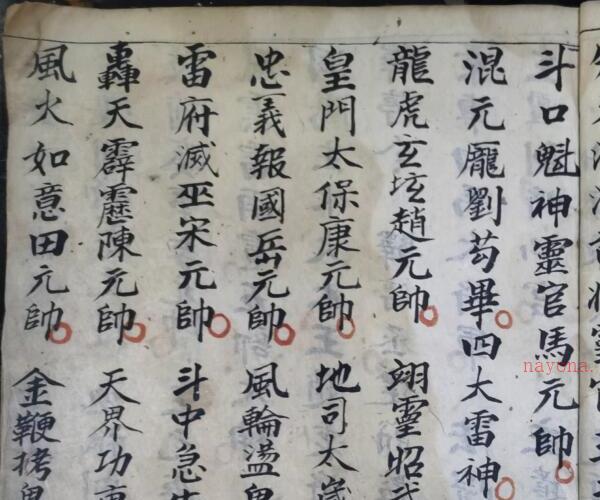 斗口魁神靈官馬元帥
混元龐劉芶畢四大雷神
龍虎玄坛趙元帥 翊靈昭武
皇門太保康元帥 地司太歲
忠義報國岳元帥 風輪盪鬼
雷府滅巫宋元帥 斗中急
轟天霹靂陳元帥 天界功
風火如意田元帥 金鞭拷鬼
nayona.